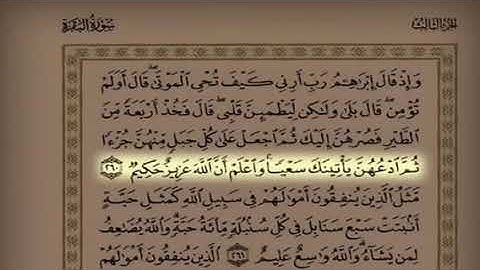 الجزء الثالث
سورة البقرة
وَإِذْ قَالَ إِبْرَٰهِـۧمُ رَبِّ أَرِنِى كَيْفَ تُحْىِ ٱلْمَوْتَىٰ ۖ قَالَ أَوَلَمْ
تُؤْمِن ۖ قَالَ بَلَىٰ وَلَـٰكِن لِّيَطْمَئِنَّ قَلْبِى ۖ قَالَ فَخُذْ أَرْبَعَةً مِّنَ
ٱلطَّيْرِ فَصُرْهُنَّ إِلَيْكَ ثُمَّ ٱجْعَلْ عَلَىٰ كُلِّ جَبَلٍ مِّنْهُنَّ جُزْءًا
ثُمَّ ٱدْعُهُنَّ يَأْتِينَكَ سَعْيًا ۚ وَٱعْلَمْ أَنَّ ٱللَّهَ عَزِيزٌ حَكِيمٌ ٢٦٠
مَّثَلُ ٱلَّذِينَ يُنفِقُونَ أَمْوَٰلَهُمْ فِى سَبِيلِ ٱللَّهِ كَمَثَلِ حَبَّةٍ
أَنۢبَتَتْ سَبْعَ سَنَابِلَ فِى كُلِّ سُنۢبُلَةٍ مِّا۟ئَةُ حَبَّةٍ ۗ وَٱللَّهُ يُضَـٰعِفُ
لِمَن يَشَآءُ ۗ وَٱللَّهُ وَٰسِعٌ عَلِيمٌ ٢٦١ ٱلَّذِينَ يُنفِقُونَ أَمْوَٰلَهُمْ